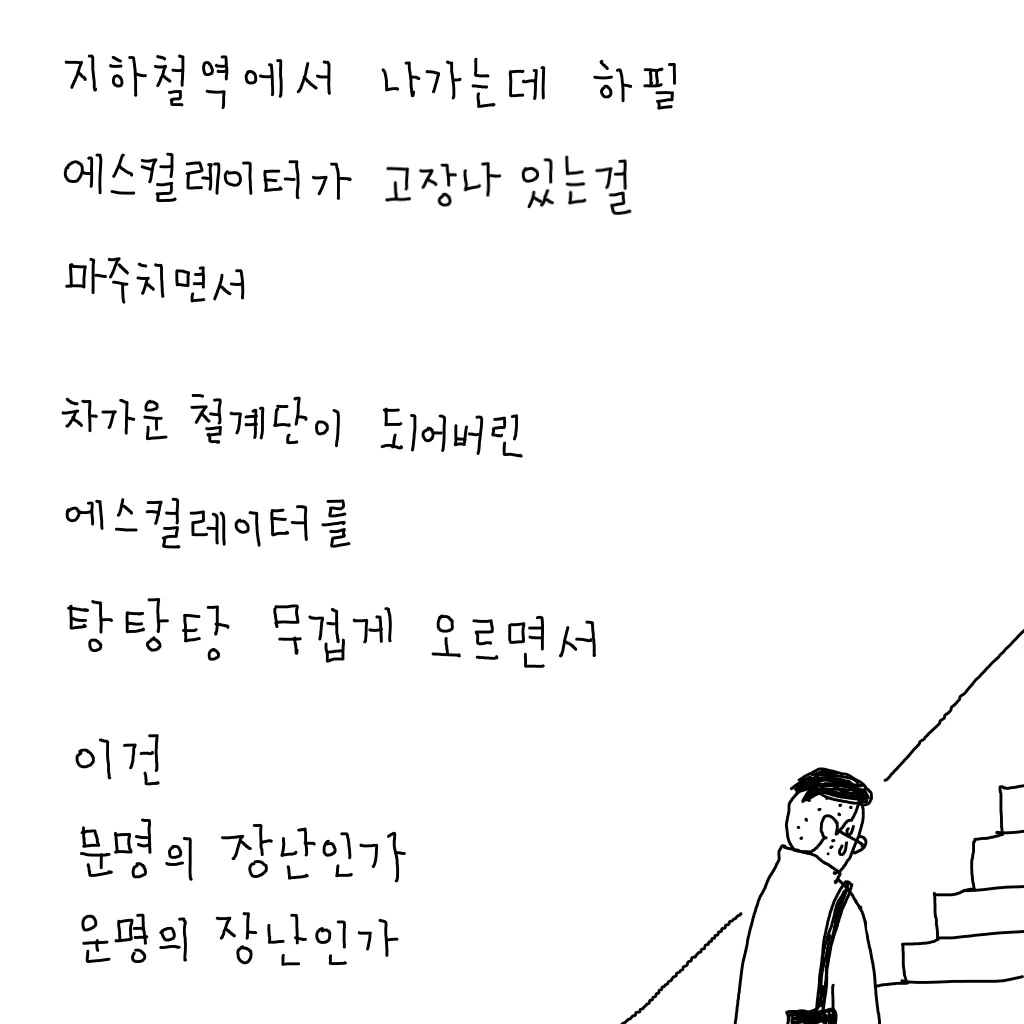 지하철역에서 나가는데 하필
에스컬레이터가 고장나 있는걸
마주치면서
차가운 철계단이 되어버린
에스컬레이터를
탕탕탕 무겁게 오르면서
이건
문명의 장난인가
운명의 장난인가